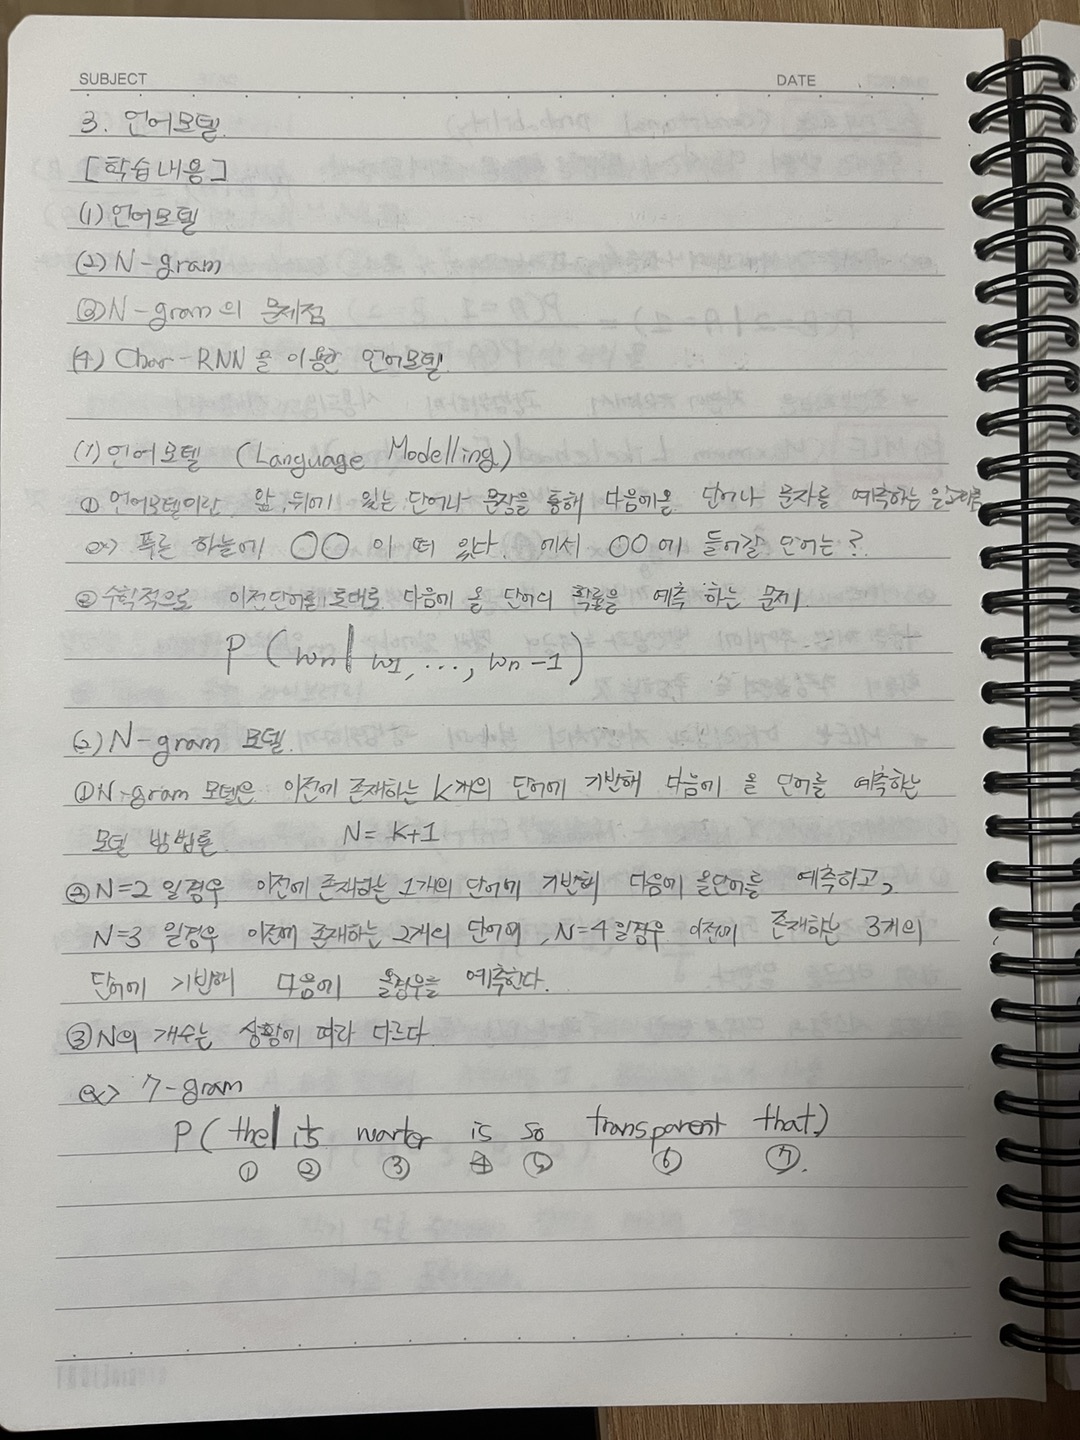 SUBJECT DATE
3. 언어모델.
[학습내용]
(1) 언어모델
(2) N-gram
(3) N-gram의 문제점
(4) Char-RNN을 이용한 언어모델.
(1) 언어모델 (Language Modelling)
① 언어모델이란, 앞, 뒤에 있는 단어나 문장을 통해 다음에올 단어나 문자를 예측하는 알고리즘
ex> 푸른 하늘에 ○○이 떠 있다. 에서 ○○에 들어갈 단어는?
② 수학적으로 이전단어를 토대로 다음에 올 단어의 확률을 예측 하는 문제.
P(wn | w1, ..., wn-1)
(2) N-gram 모델.
① N-gram 모델은 이전에 존재하는 K개의 단어에 기반해 다음에 올 단어를 예측하는
모델 방법론 N= K+1
② N=2 일경우 이전에 존재하는 1개의 단어에 기반해 다음에 올단어를 예측하고,
N=3 일경우 이전에 존재하는 2개의 단어에, N=4일경우 이전에 존재하는 3개의
단어에 기반해 다음에 올경우를 예측한다.
③ N의 개수는 상황에 따라 다르다.
ex> 7-gram
P( the | its is so transparent that)
① ② ③ ④ ⑤ ⑥ ⑦.